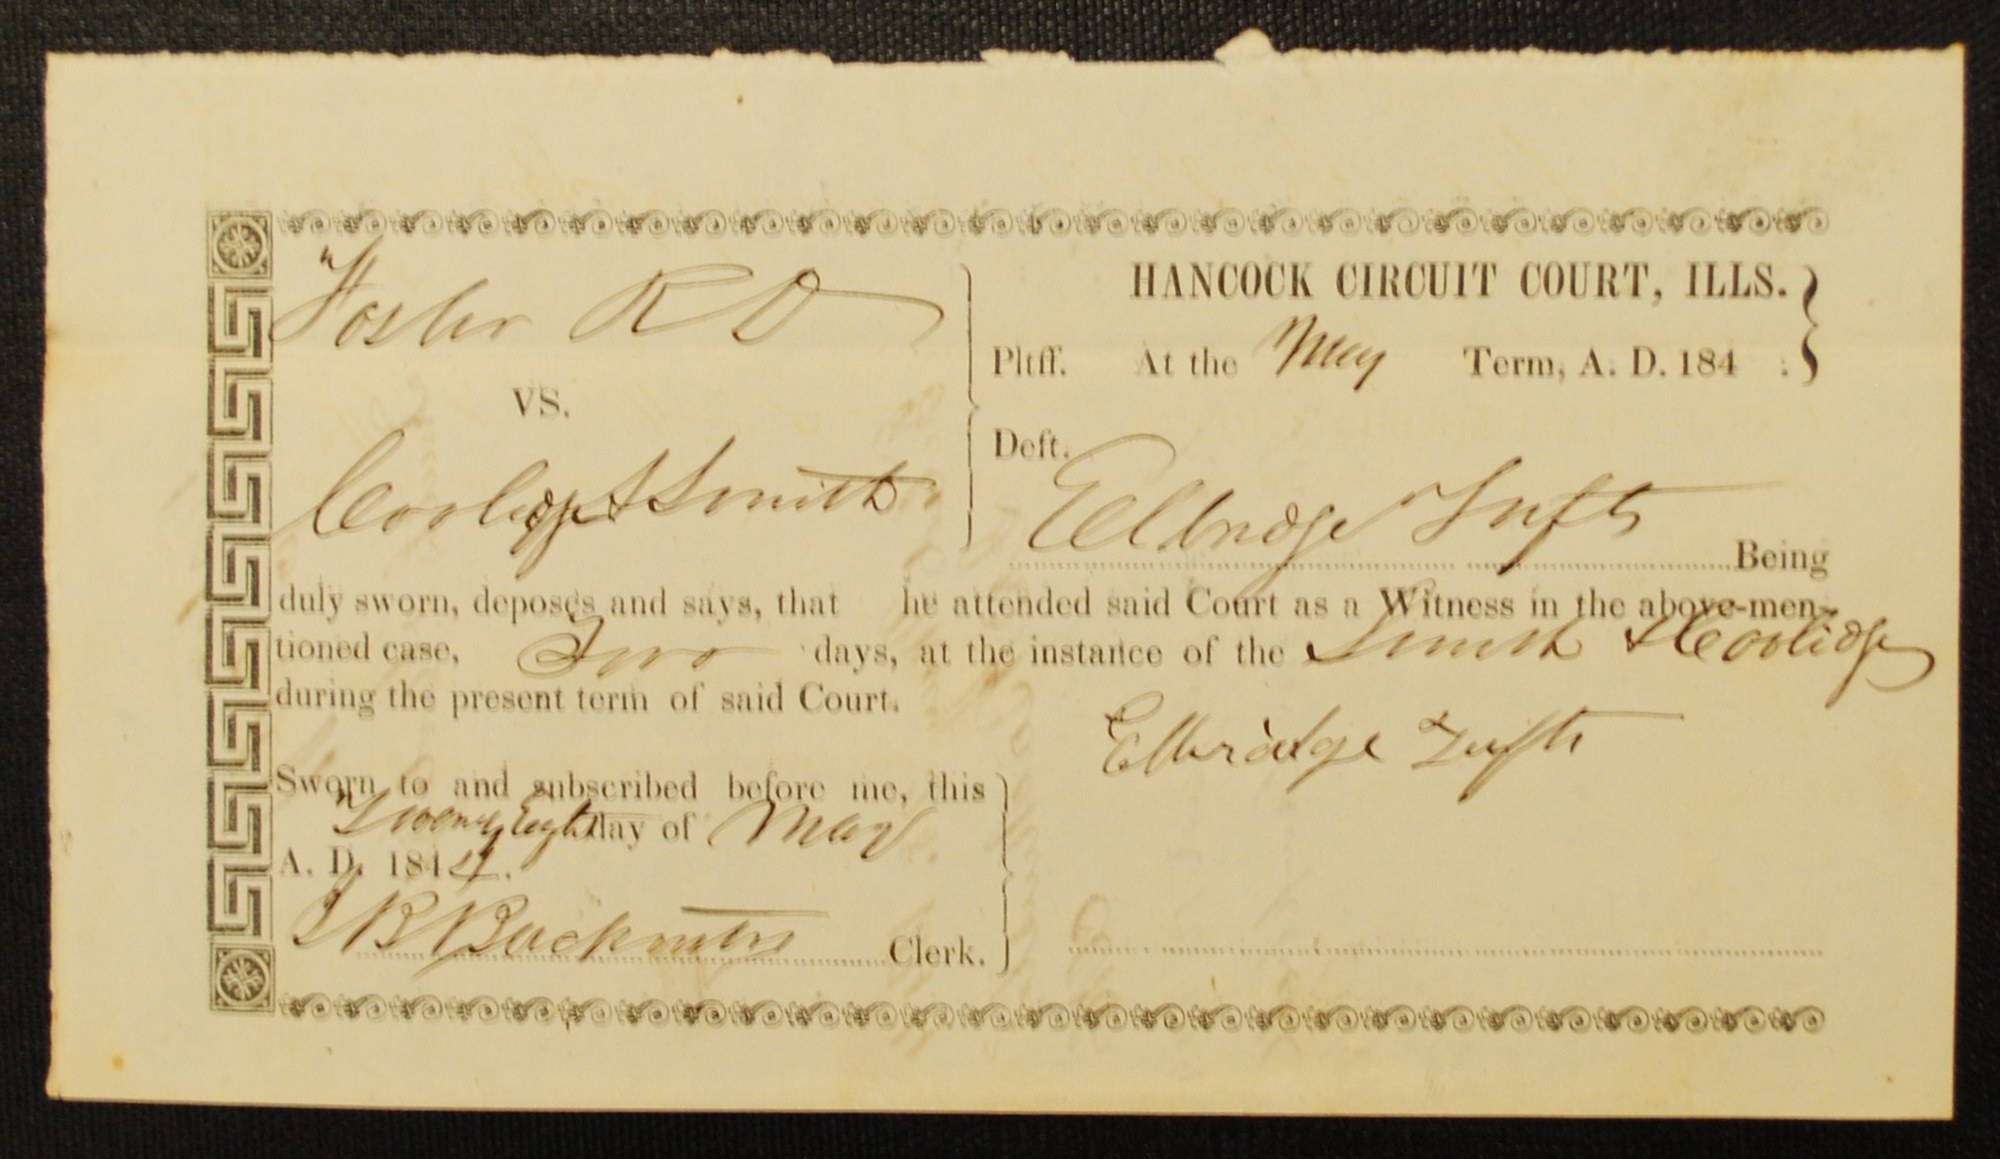 Foster R D
HANCOCK CIRCUIT COURT, ILLS.
Pltff. At the May Term, A. D. 184 .
VS.
Deft.
Coolidge & Smith
Elbridge Tufts Being
duly sworn, deposes and says, that he attended said Court as a Witness in the above-men-
tioned case, Two days, at the instance of the Smith & Coolidge
during the present term of said Court.
Elbridge Tufts
Sworn to and subscribed before me, this
Twenty Eight day of May
A. D. 1844.
J B Backenstos Clerk.